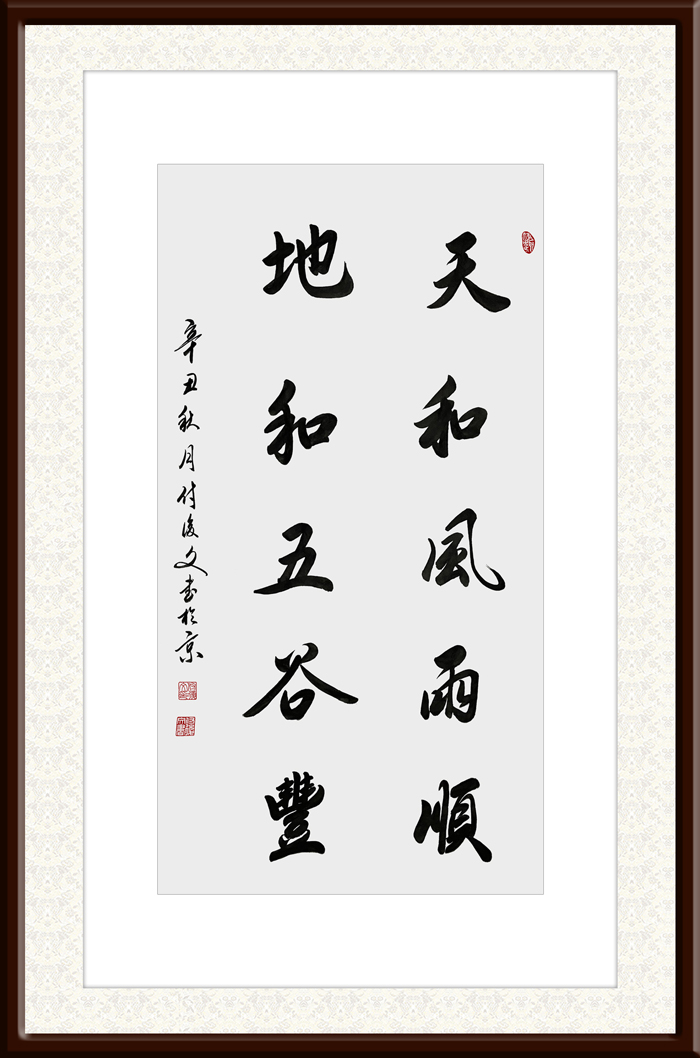 天和風雨順
地和五谷豐
辛丑秋月付俊文書於京